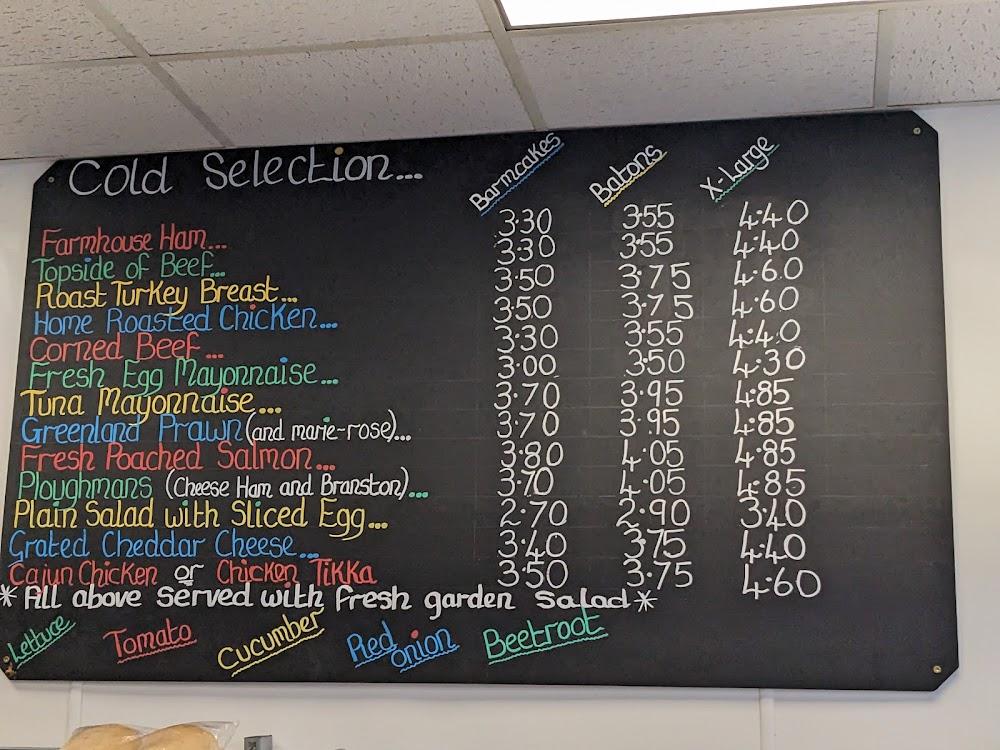 Cold Selection... Barmcakes Batons X-Large
Farmhouse Ham... 3.30 3.55 4.40
Topside of Beef... 3.30 3.55 4.40
Roast Turkey Breast... 3.50 3.75 4.60
Home Roasted Chicken... 3.50 3.75 4.60
Corned Beef... 3.30 3.55 4.40
Fresh Egg Mayonnaise... 3.00 3.50 4.30
Tuna Mayonnaise... 3.70 3.95 4.85
Greenland Prawn (and marie-rose)... 3.70 3.95 4.85
Fresh Poached Salmon... 3.80 4.05 4.85
Ploughmans (Cheese Ham and Branston)... 3.70 4.05 4.85
Plain Salad with Sliced Egg... 2.70 2.90 3.40
Grated Cheddar Cheese... 3.40 3.75 4.40
Cajun Chicken or Chicken Tikka 3.50 3.75 4.60
*All above Served with fresh garden salad*
Lettuce Tomato Cucumber Red onion Beetroot